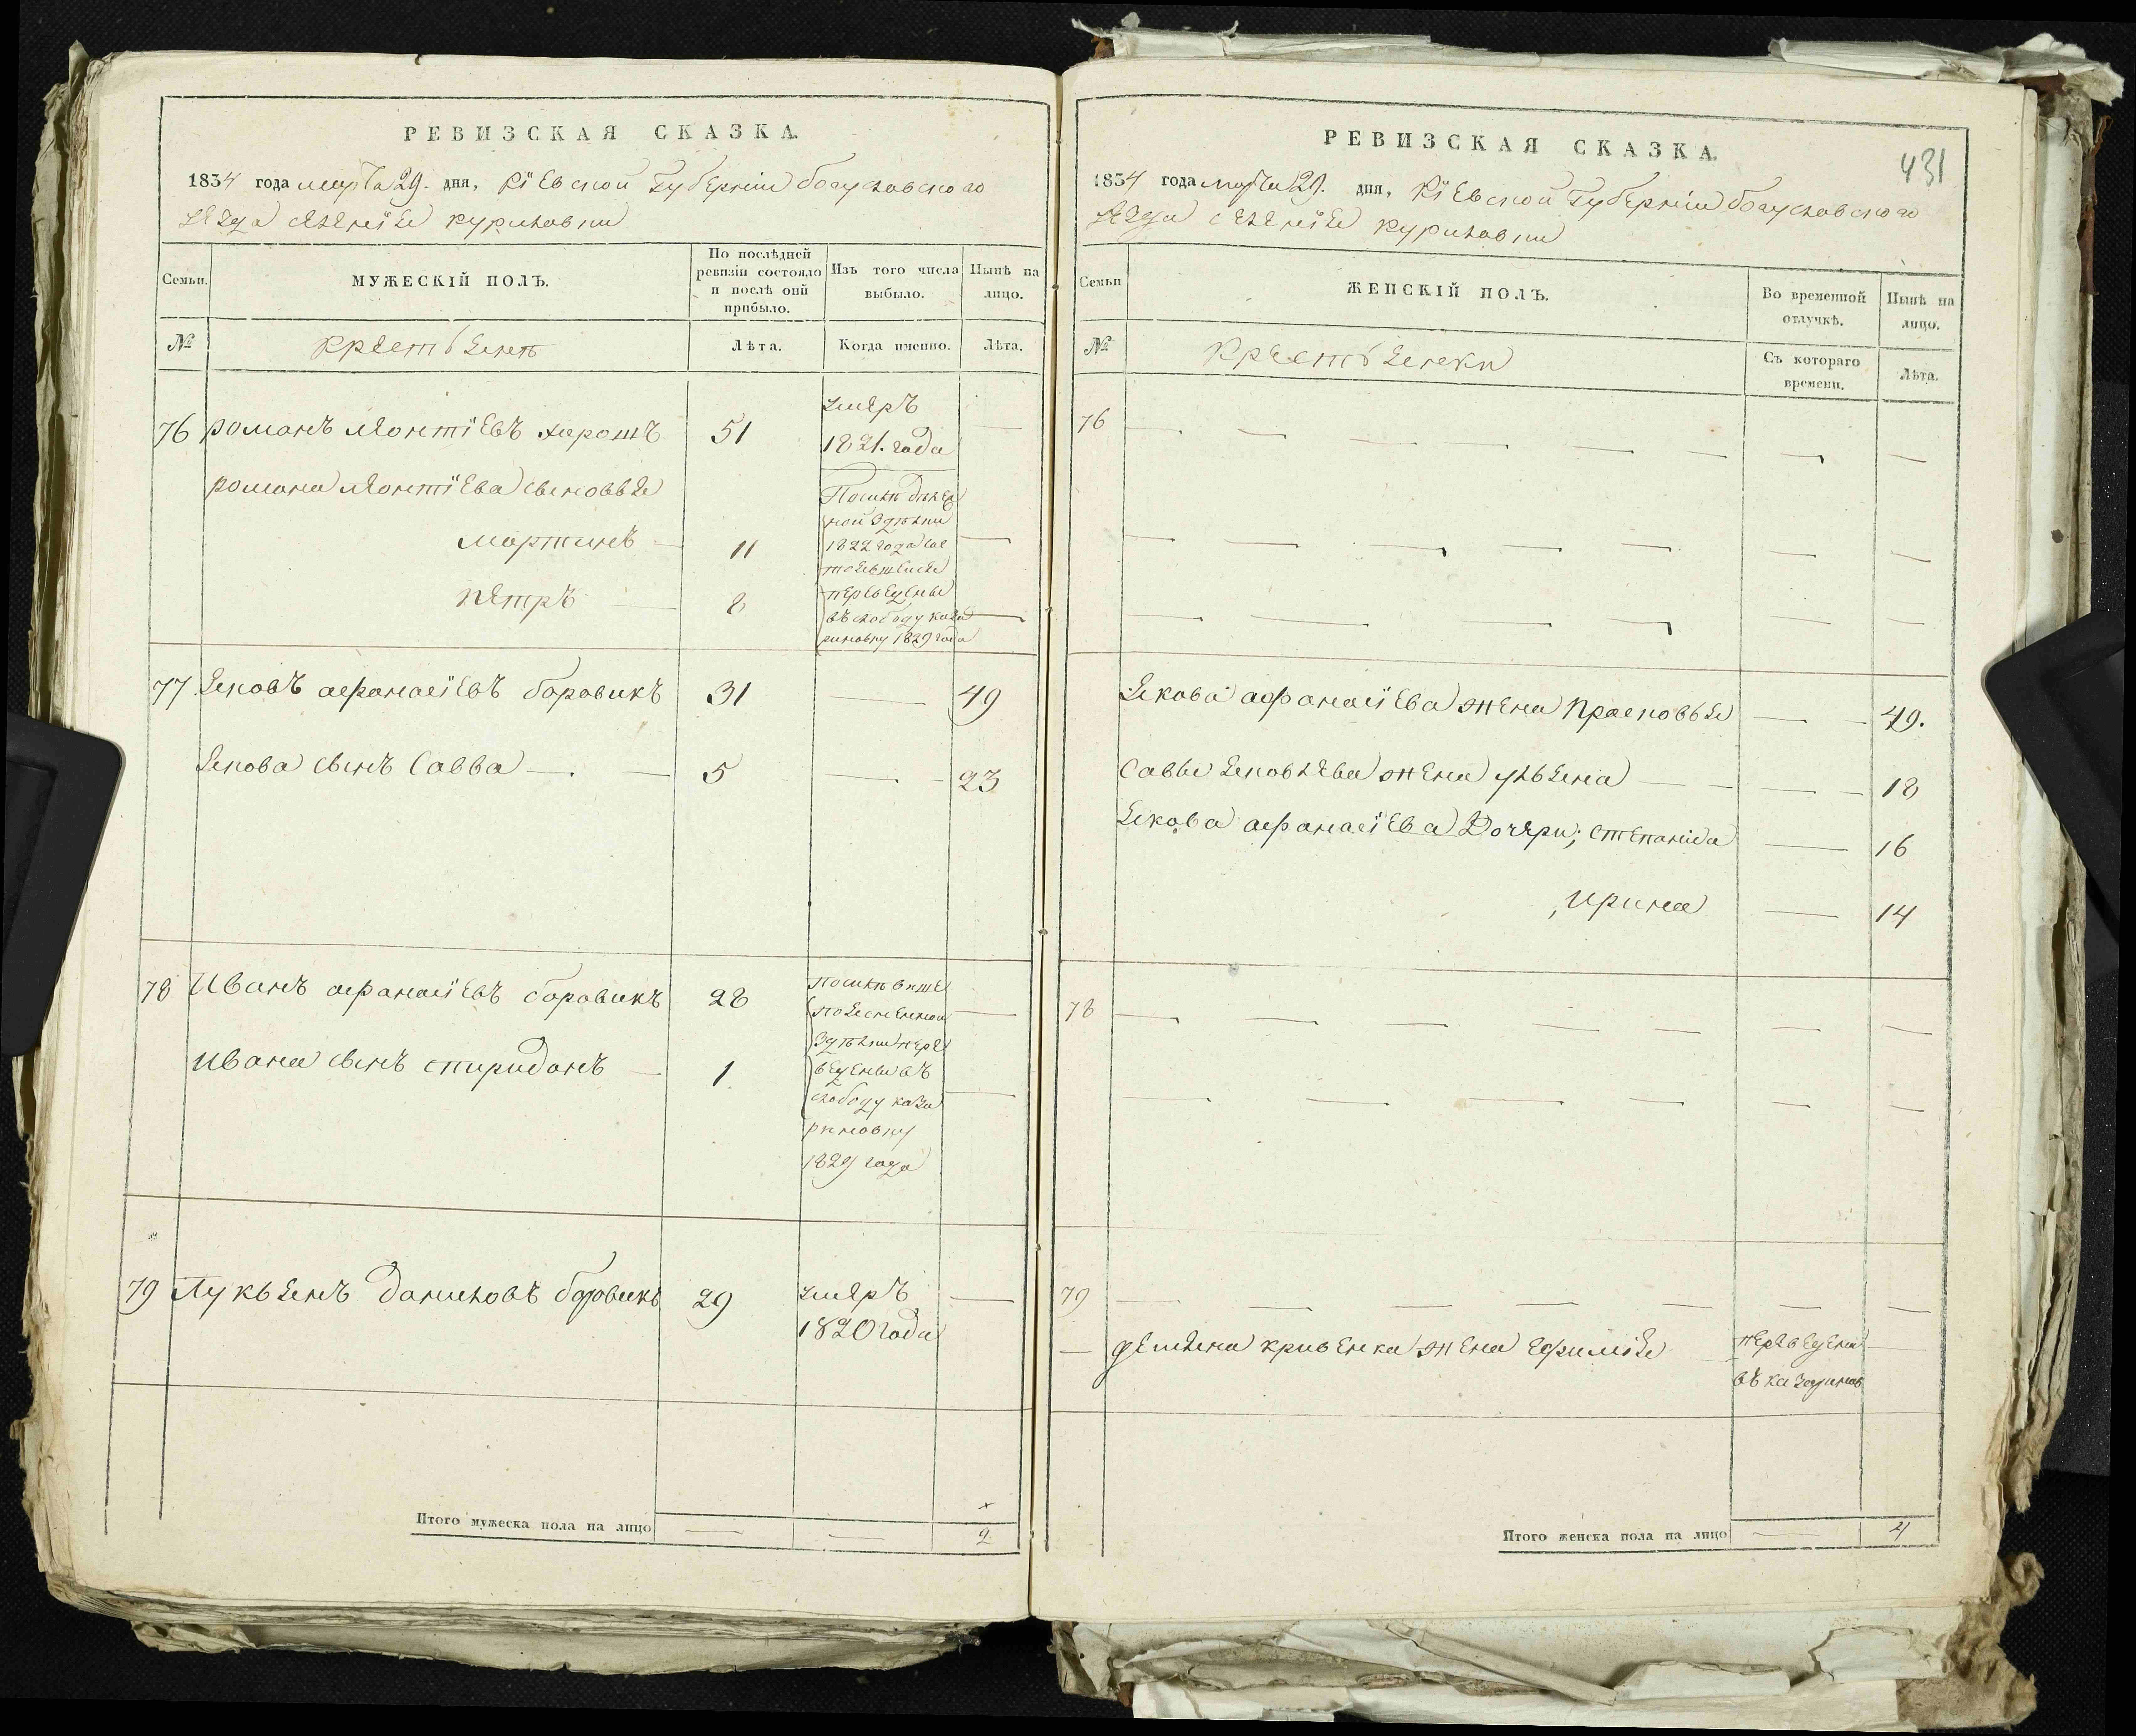 РЕВИЗСКАЯ СКАЗКА.
1834 года марта 29. дня, Кіевской Губерніи Богуславского
уезда селенія Куриловки
Семьи.
МУЖЕСКІЙ ПОЛЪ.
По послѣдней ревизіи состояло и послѣ оній прибыло.
Изъ того числа выбыло.
Нынѣ на лицо.
№
Крестьяне
Лѣта.
Когда именно.
Лѣта.
76 романъ леонтіевъ 51
умеръ
1821. года
романа леонтіева сыновья
мартинъ 11
петръ 8
1822 года
переведены
въ слободу Каза
риновку 1829 года
77 Яковъ афанасіевъ боровикъ 31 — 49
Якова сынъ Савва — 5 — 23
78 Иванъ афанасіевъ боровикъ 28
Ивана сынъ спиридонъ 1
пере
ведены въ
слободу Каза
риновку
1829 года
79 Лукьянъ даниловъ боровикъ 29
умеръ
1820 года
Итого мужеска пола на лицо — — 2
РЕВИЗСКАЯ СКАЗКА.
431
1834 года марта 29. дня, Кіевской Губерніи Богуславского
уезда селенія Куриловки
Семьи
ЖЕНСКІЙ ПОЛЪ.
Во временной отлучкѣ.
Нынѣ на лицо.
№
Крестьянки
Съ котораго времени.
Лѣта.
76
Якова афанасіева жена Прасковья — 49.
Саввы Яковлева жена ульяна — 18
Якова афанасіева дочери; степанида — 16
, ирина — 14
78
79
— демьяна кривенка жена ефимія
переведена
въ Казаринов
Итого женска пола на лицо — 4